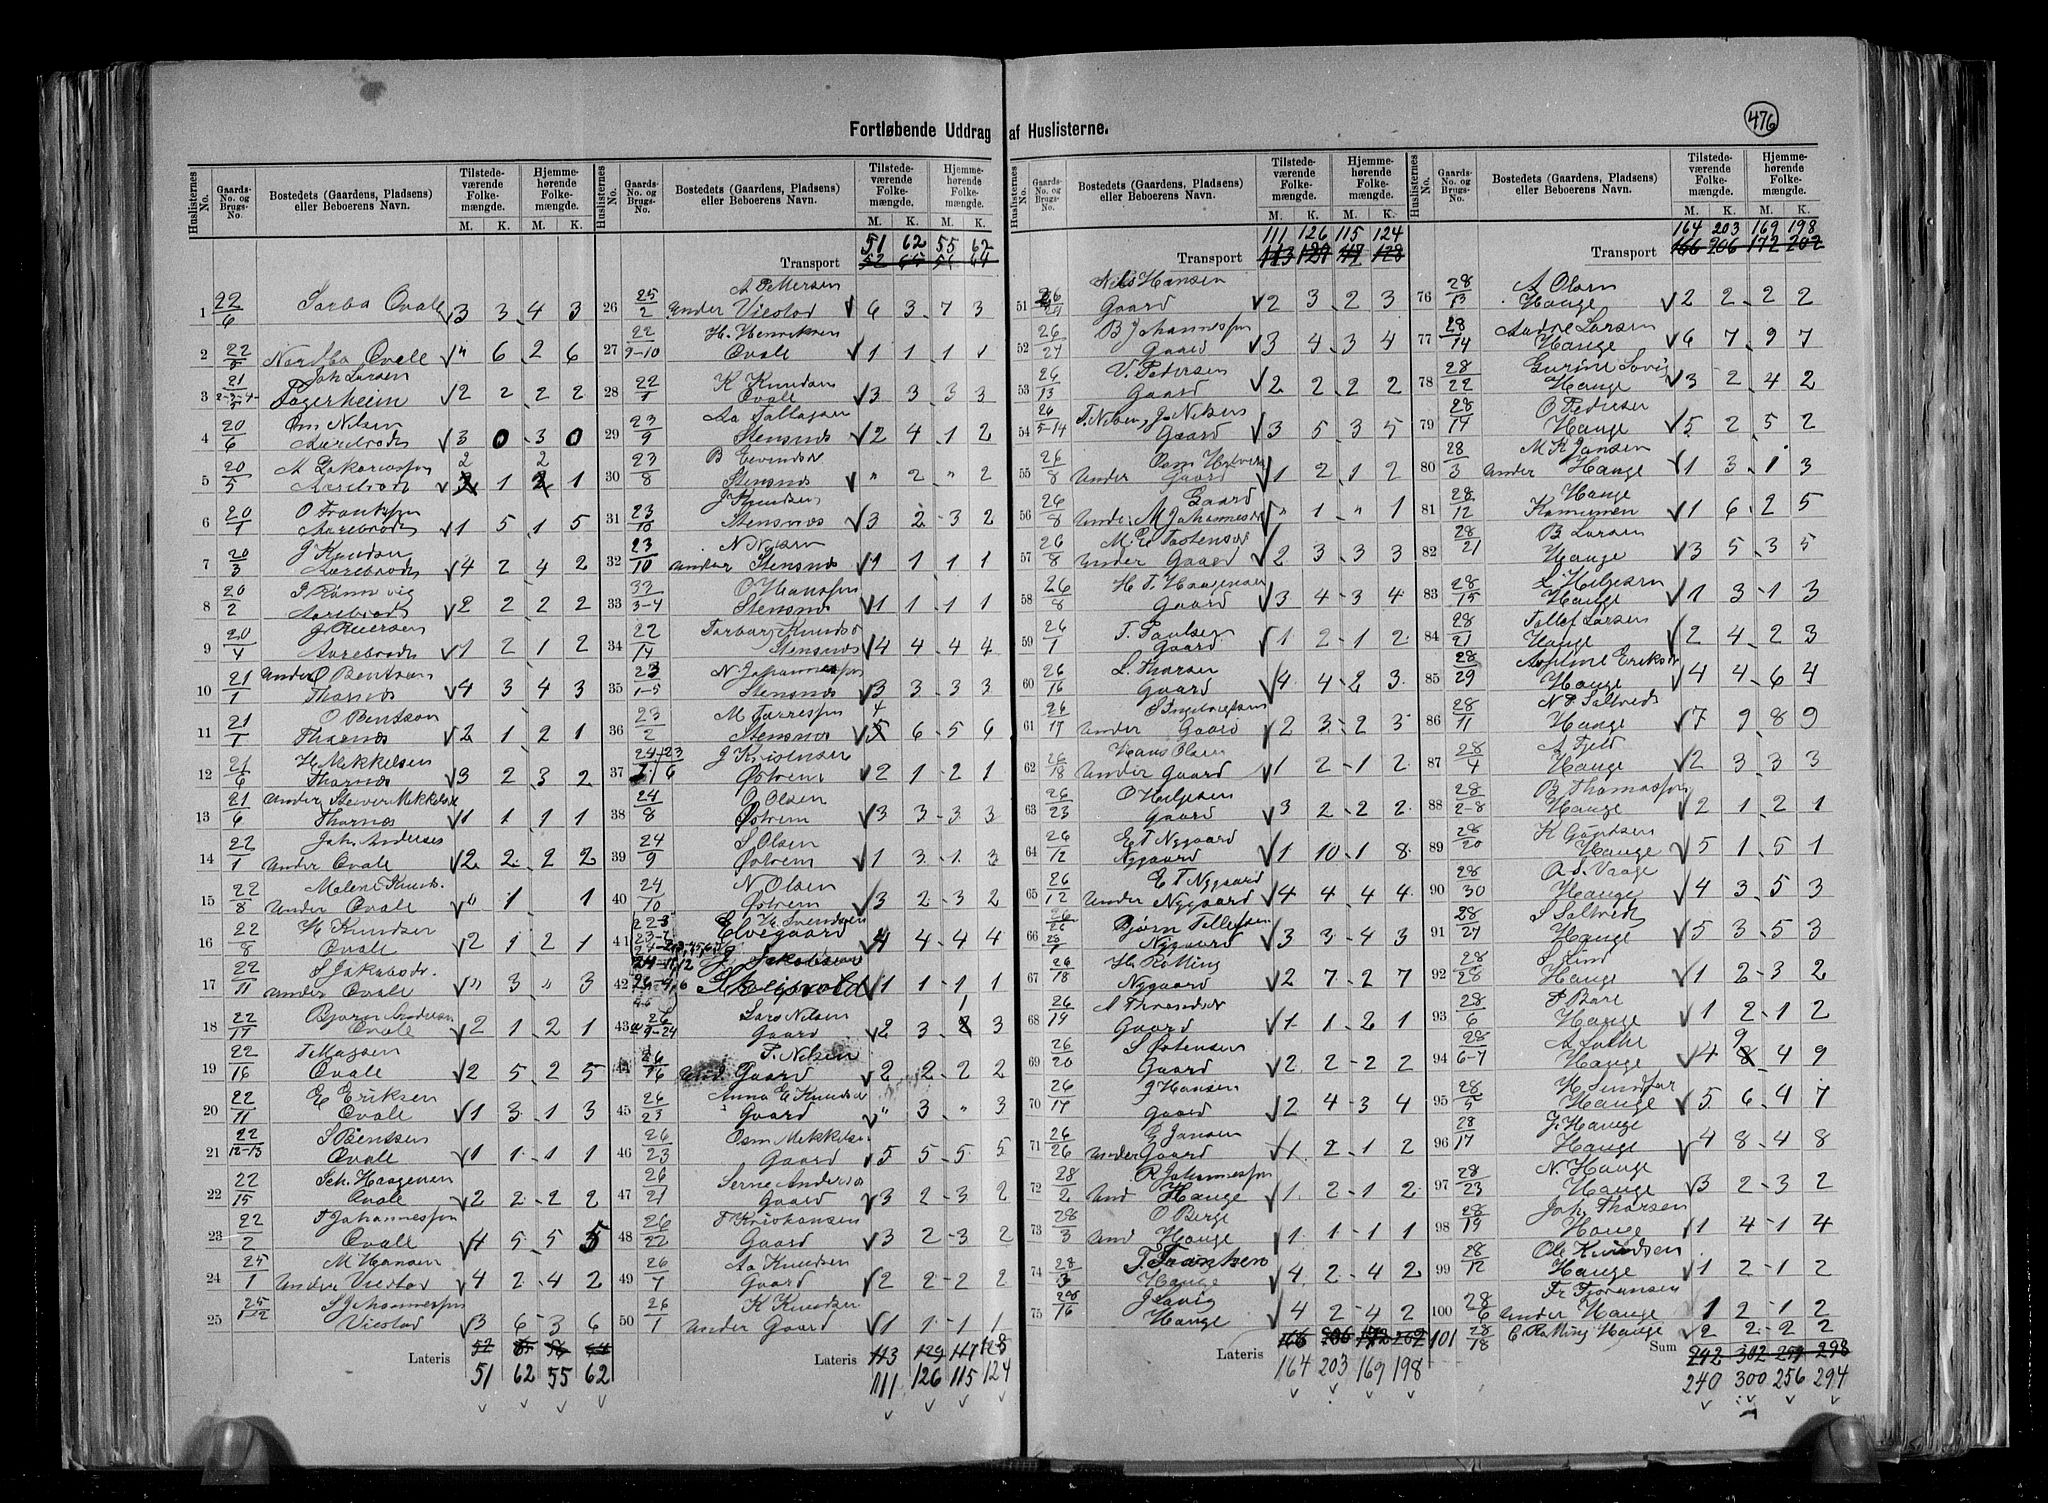 Fortløbende Uddrag af Huslisterne.
476
Huslisternes No. | Gaards-No. og Brugs-No. | Bostedets (Gaardens, Pladsens) eller Beboerens Navn. | Tilstedeværende Folkemængde. M. K. | Hjemmehørende Folkemængde. M. K.
1 22/6 Sørbø Ovale 3 3 4 3
2 22/5 Nordbø Ovale " 6 2 6
3 21/2-3-4-5 Joh Larsen Fagerheim 2 2 2 2
4 20/6 Om Nilsen Aarebrod 3 0 3 0
5 20/5 A Zakariasson Aarebrod 2 1 2 1
6 20/1 O Franksson Aarebrod 1 5 1 5
7 20/3 J Knudsen Aarebrod 4 2 4 2
8 20/2 Aarebrod 2 2 2 2
9 20/4 Aarebrod 1 2 1 2
10 21/1 Under O Bentsen Thornes 4 3 4 3
11 21/1 O Bentson Thornes 2 1 2 1
12 21/6 H Mekkelsen Thornes 3 2 3 2
13 21/6 Under Thornes 1 1 1 1
14 22/1 Joh Anderses Under Ovale 2 2 2 2
15 22/8 Malene Knuds. Under Ovale " 1 1
16 22/8 H Knudsen Ovale 2 1 2 1
17 22/11 S Jakobsdr. Under Ovale " 3 " 3
18 22/17 Ovale 2 1 2 1
19 22/16 T Magsen Ovale 2 5 2 5
20 22/11 E Eriksen Ovale 1 3 1 3
21 22/12-13 S Bentsen Ovale 1 1 1 1
22 22/15 Sch. Haagensen Ovale 2 2 2 2
23 22/2 T Johannesson Ovale 4 5 5 5
24 25/1 M Hansen Under Viestad 4 2 4 2
25 25/1-2 S Johannesson Viestad 3 6 3 6
Lateris 52 65 56 64
51 62 55 62
Transport 51 62 55 62
52 65 56 64
26 25/2 A Pettersen Under Viestad 6 3 7 3
27 22/9-10 H. Henriksen Ovale 1 1 1 1
28 22/1 K Knudsen Ovale 3 3 3 3
29 23/9 Aa Tallagsen Stensnes 2 4 1 2
30 23/8 B Eivindsdr Stensnes " 2 " 2
31 23/10 J Knudsen Stensnes 3 2 3 2
32 23/10 Under Stensnes 1 1 1 1
33 33/3-4 O Hansson Stensnes 1 1 1 1
34 22/14 Torbør Knudsd Stensnes 4 4 4 4
35 23/1-5 N Johannesson Stensnes 3 3 3 3
36 23/2 M Torresson Stensnes 4 6 5 6
37 24/1 23/6 J Kristensen Østrem 2 1 2 1
38 24/8 O Olsen Østrem 3 3 3 3
39 24/9 S Olsen Østrem 1 3 1 3
40 24/10 N Olsen Østrem 3 2 3 2
41 E H Svendsen Elvegaard 4 4 4 4
42 J Jakobsen 1 1 1 1
43 26/9-24 Lars Nilsen Gaard 2 3 1 3
44 26/16 P. Nilsen Und Gaard 2 2 2 2
45 26/23 Anna E Knudsd Gaard " 3 " 3
46 26/23 Osm Mekkelse Gaard 5 5 5 5
47 26/21 Serne Anderse Gaard 3 2 3 2
48 26/22 T Kristiansen Gaard 3 2 3 2
49 26/7 Aa Knudsen Gaard 2 2 2 2
50 26/1 K Knudsen Under Gaard 1 1 1 1
Lateris 113 129 117 128
111 126 115 124
Transport 111 126 115 124
113 129 117 128
51 26/27 Nils Hansen Gaard 2 3 2 3
52 26/24 B Johannesson Gaard 3 4 3 4
53 26/13 V. Pedersen Gaard 2 2 2 2
54 26/5-14 T. Nilsen, J. Nilsen Gaard 3 5 3 5
55 26/8 Under Gaard 1 2 1 2
56 26/8 Gaard Under M Johannesdr " 1 " 1
57 26/8 Under Gaard 2 3 3 3
58 26/8 H T Haagensen Gaard 3 4 3 4
59 26/1 T. Paulsen Gaard 1 2 1 2
60 26/16 L. Thorsen Gaard 4 4 2 3
61 26/17 S Ingebrigtsen Under Gaard 2 3 2 3
62 26/18 Hans Olsen Under Gaard 1 2 1 2
63 26/23 O Helgesen Gaard 3 2 2 2
64 26/12 E T Nygaard Nygaard 1 10 1 8
65 26/12 E T Nygaard Under Nygaard 4 4 4 4
66 Bjørn Tellefsen Nygaard 3 3 4 3
67 26/18 H. Rotting Nygaard 2 7 2 7
68 26/19 Gaard 1 1 2 1
69 26/20 S Østensen Gaard 2 2 2 2
70 26/17 J Hansen Gaard 2 4 3 4
71 26/26 G Jansen Under Gaard 1 2 1 2
72 28/2 R Johannesson Und Hauge 1 2 1 2
73 28/3 O Berge Und Hauge 1 1 1 1
74 28/3 T. Frantsen Hauge 4 2 4 2
75 28/16 J Løvig Hauge 4 2 4 2
Lateris 166 206 172 202
164 203 169 198
Transport 164 203 169 198
166 206 172 202
76 28/13 A Olsen Hauge 2 2 2 2
77 28/14 Andre Larsen Hauge 6 7 9 7
78 28/22 Gurine Løvig Hauge 3 2 4 2
79 28/14 O Pedersen Hauge 5 2 5 2
80 28/3 M K Jansen Under Hauge 1 3 1 3
81 28/12 Hauge 1 6 2 5
82 28/21 B Larsen Hauge 3 5 3 5
83 28/15 L Helgesen Hauge 1 3 1 3
84 28/21 Tollef Larsen Hauge 2 4 2 3
85 28/29 Eriksdr Hauge 4 4 6 4
86 28/11 N P Saltveds Hauge 7 9 8 9
87 28/4 A Fjeld Hauge 2 3 3 3
88 28/2-8 B Thomasson Hauge 2 1 2 1
89 28/20 K Gautsen Hauge 5 1 5 1
90 28/30 A. S. Vaage Hauge 4 3 5 3
91 28/27 S Saltveds Hauge 5 3 5 3
92 28/28 S Lind Hauge 1 2 3 2
93 28/6 Hauge 1 2 1 2
94 28/6-7 A Lothe Hauge 4 9 4 9
95 28/5 H Sundfør Hauge 5 6 4 7
96 28/17 J. Hauge Hauge 4 8 4 8
97 28/23 N. Hauge Hauge 3 2 3 2
98 28/19 Joh. Thorsen Hauge 1 4 1 4
99 28/12 Ole Knudsen Hauge 1 2 1 2
100 28/6 Under Hauge 1 2 1 2
101 28/18 E Rotting Hauge 2 2 2 2
Sum 242 302 259 298
240 300 256 294